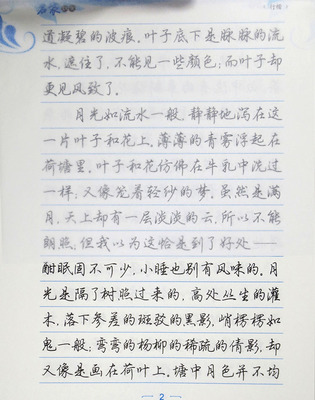 道凝碧的波痕。叶子底下是脉脉的流
水，遮住了，不能见一些颜色；而叶子却
更见风致了。
月光如流水一般，静静地泻在这
一片叶子和花上。薄薄的青雾浮起在
荷塘里。叶子和花仿佛在牛乳中洗过
一样；又像笼着轻纱的梦。虽然是满
月，天上却有一层淡淡的云，所以不能
朗照；但我以为这恰是到了好处——
酣眠固不可少，小睡也别有风味的。月
光是隔了树照过来的，高处丛生的灌
木，落下参差的斑驳的黑影，峭楞楞如
鬼一般；弯弯的杨柳的稀疏的倩影，却
又像是画在荷叶上。塘中月色并不均
2